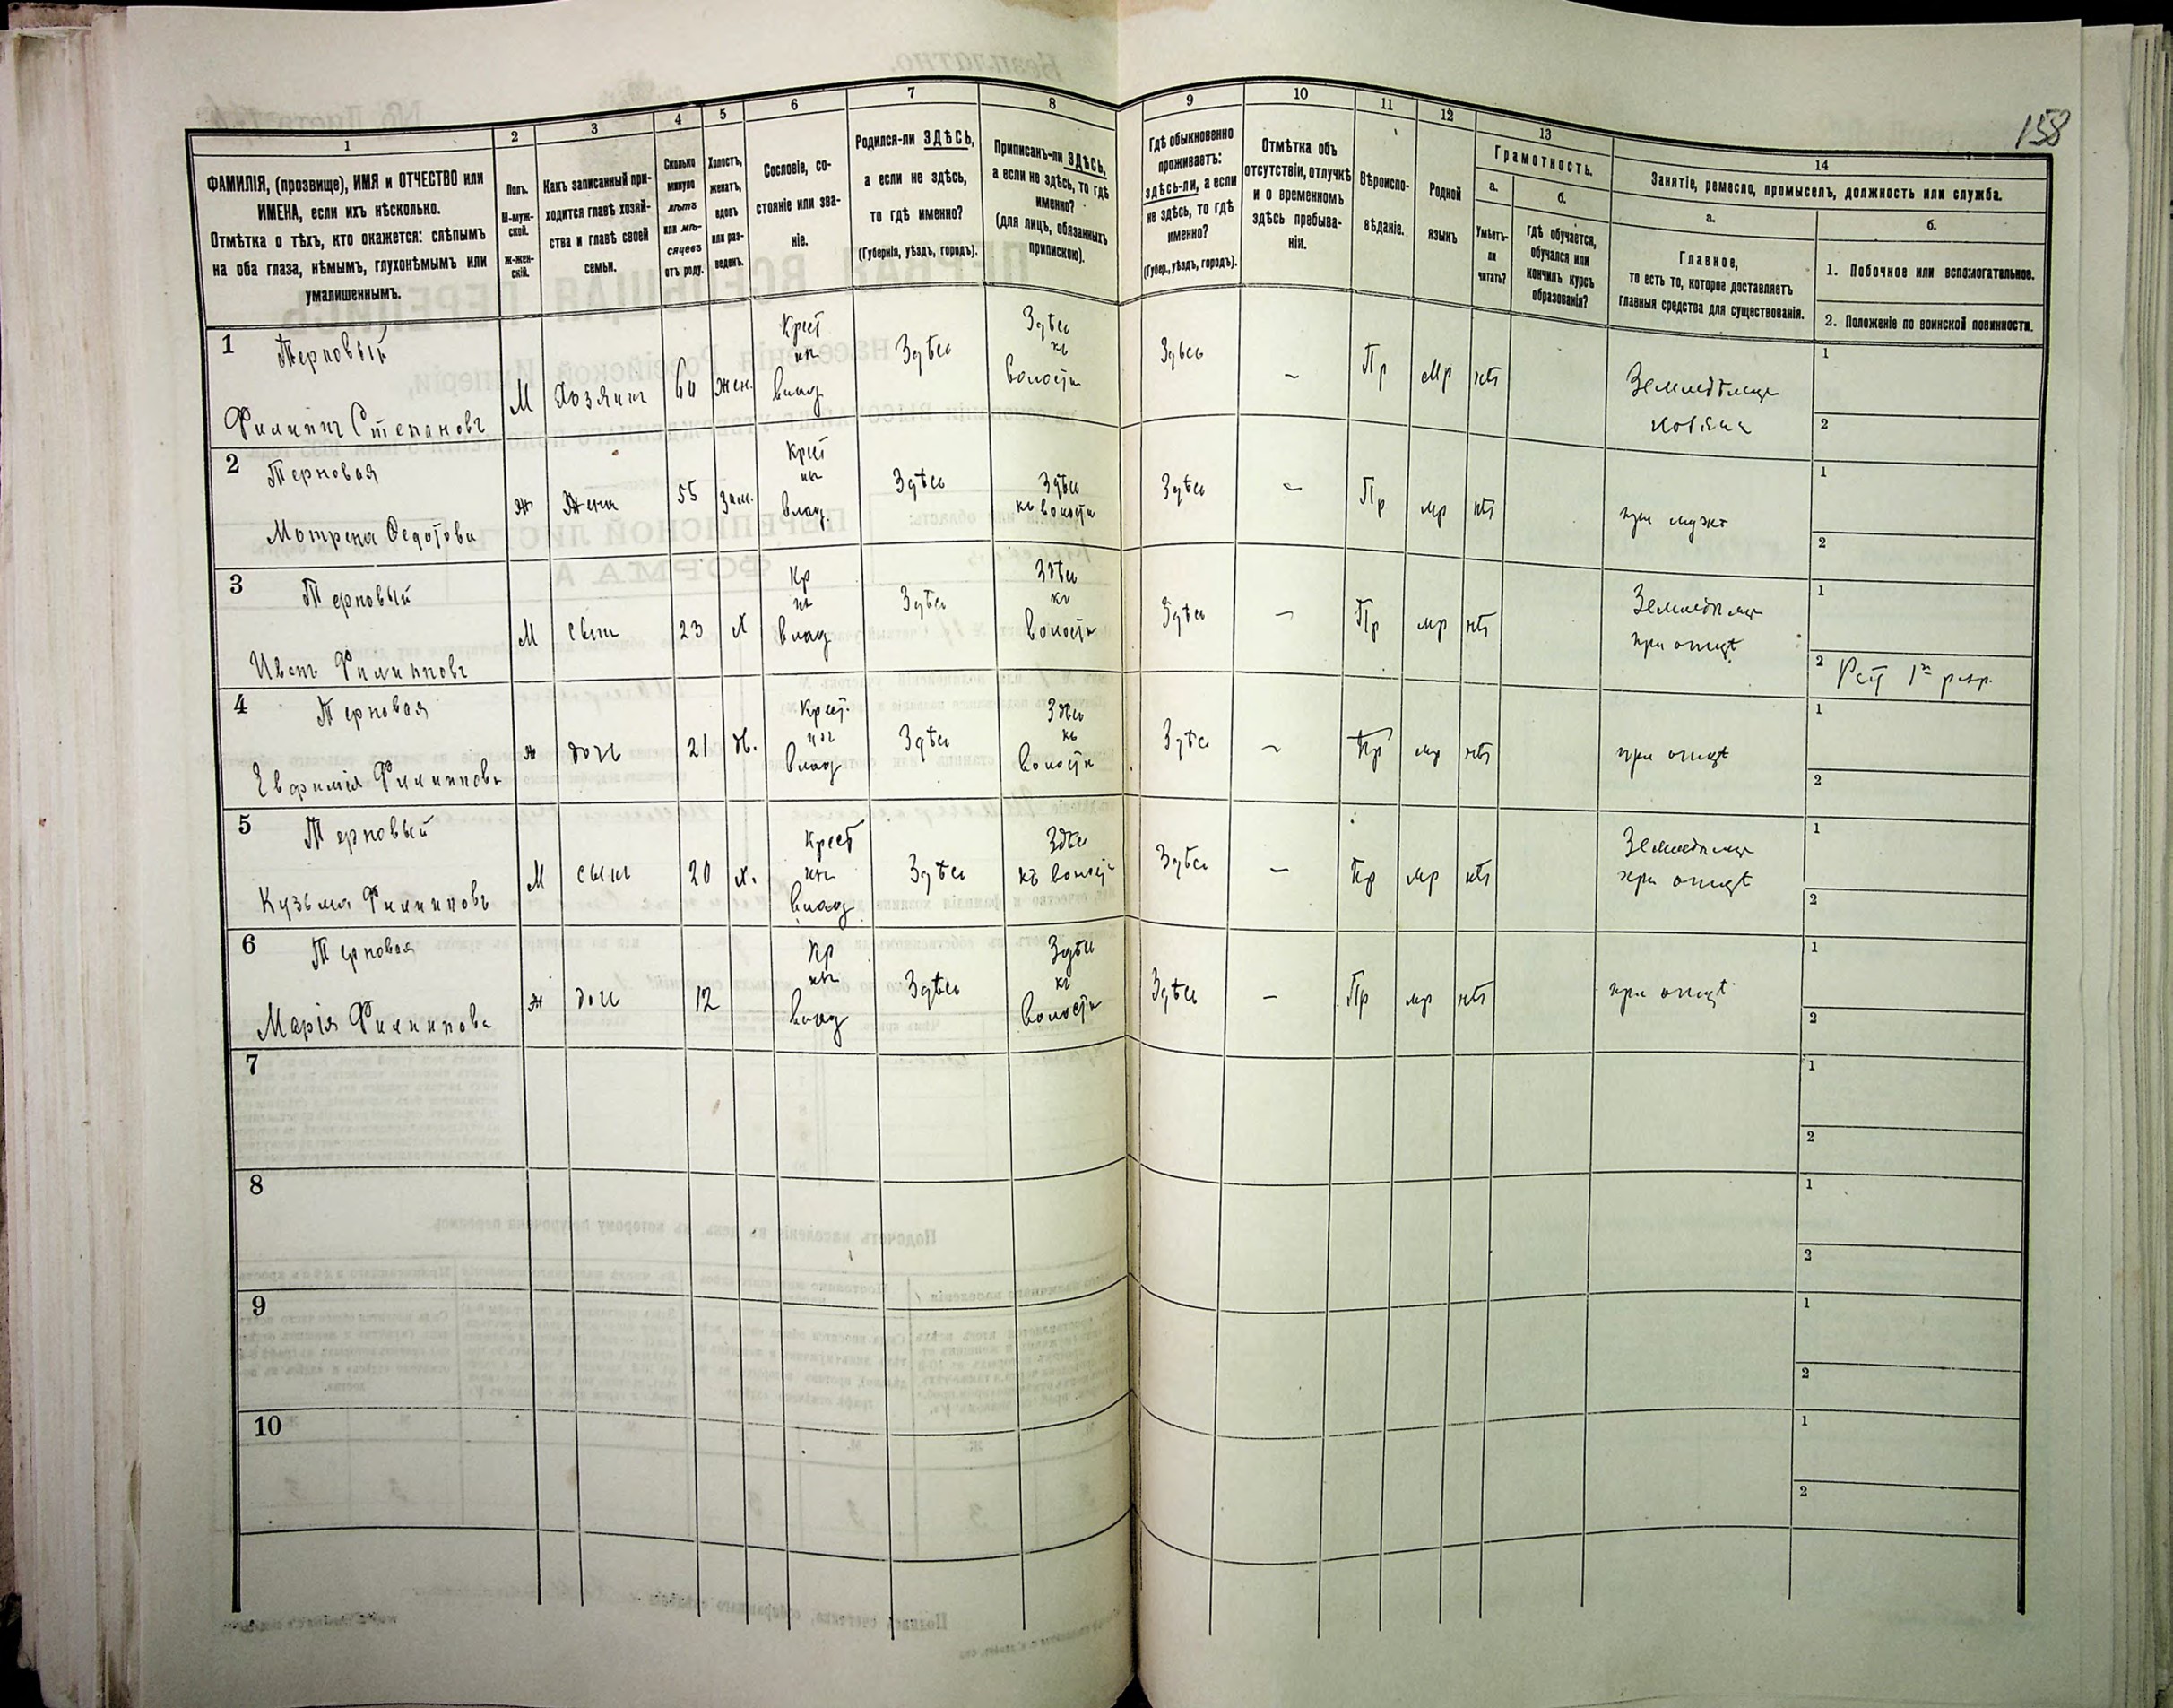 158
1
2
3
4
5
6
7
8
9
10
11
12
13
14
ФАМИЛІЯ, (прозвище), ИМЯ и ОТЧЕСТВО или
ИМЕНА, если ихъ нѣсколько.
Отмѣтка о тѣхъ, кто окажется: слѣпымъ
на оба глаза, нѣмымъ, глухонѣмымъ или
умалишеннымъ.
Полъ.
М-муж-
ской.
Ж-жен-
скій.
Какъ записанный при-
ходится главѣ хозяй-
ства и главѣ своей
семьи.
Сколько
минуло
лѣтъ
или мѣ-
сяцевъ
отъ роду.
Холостъ,
женатъ,
вдовъ
или раз-
веденъ.
Сословіе, со-
стояніе или зва-
ніе.
Родился-ли ЗДѢСЬ,
а если не здѣсь,
то гдѣ именно?
(Губернія, уѣздъ, городъ).
Приписанъ-ли ЗДѢСЬ,
а если не здѣсь, то гдѣ
именно?
(для лицъ, обязанныхъ
припискою).
Гдѣ обыкновенно
проживаетъ:
здѣсь-ли, а если
не здѣсь, то гдѣ
именно?
(Губер., уѣздъ, городъ).
Отмѣтка объ
отсутствіи, отлучкѣ
и о временномъ
здѣсь пребыва-
ніи.
Вѣроиспо-
вѣданіе.
Родной
языкъ
Грамотность.
а.
Умѣетъ-
ли
читать?
б.
гдѣ обучается,
обучался или
кончилъ курсъ
образованія?
Занятіе, ремесло, промыселъ, должность или служба.
а.
Главное,
то есть то, которое доставляетъ
главныя средства для существованія.
б.
1. Побочное или вспомогательное.
2. Положеніе по воинской повинности.
1
Терновый
Филиппъ Степановъ
М
Хозяинъ
60
жен.
Крест
влад
Здѣсь
Здѣсь
къ
волости
Здѣсь
–
Пр
Мр
нѣт
Земледѣлец
хозяин
1
2
2
Терновая
Мотрена Федотова
Ж
Жена
55
Зам.
Крест
влад.
Здѣсь
Здѣсь
къ волости
Здѣсь
–
Пр
мр
нѣт
при мужѣ
1
2
3
Терновый
Иванъ Филипповъ
М
сынъ
23
Х
Кр
влад
Здѣсь
Здѣсь
къ
волости
Здѣсь
–
Пр
мр
нѣт
Земледѣлец
при отцѣ
1
2 Рат 1го разр.
4
Терновая
Евфимія Филиппова
ж
дочь
21
дѣв.
Крест.
влад
Здѣсь
Здѣсь
къ
волости
Здѣсь
–
Пр
мр
нѣт
при отцѣ
1
2
5
Терновый
Кузьма Филипповъ
М
сынъ
20
х.
Крест
влад
Здѣсь
Здѣсь
къ волости
Здѣсь
–
Пр
мр
нѣт
Земледѣлец
при отцѣ
1
2
6
Терновая
Марія Филиппова
Ж
дочь
12
Кр
влад
Здѣсь
Здѣсь
къ
волости
Здѣсь
–
Пр
мр
нѣт
при отцѣ
1
2
7
1
2
8
1
2
9
1
2
10
1
2